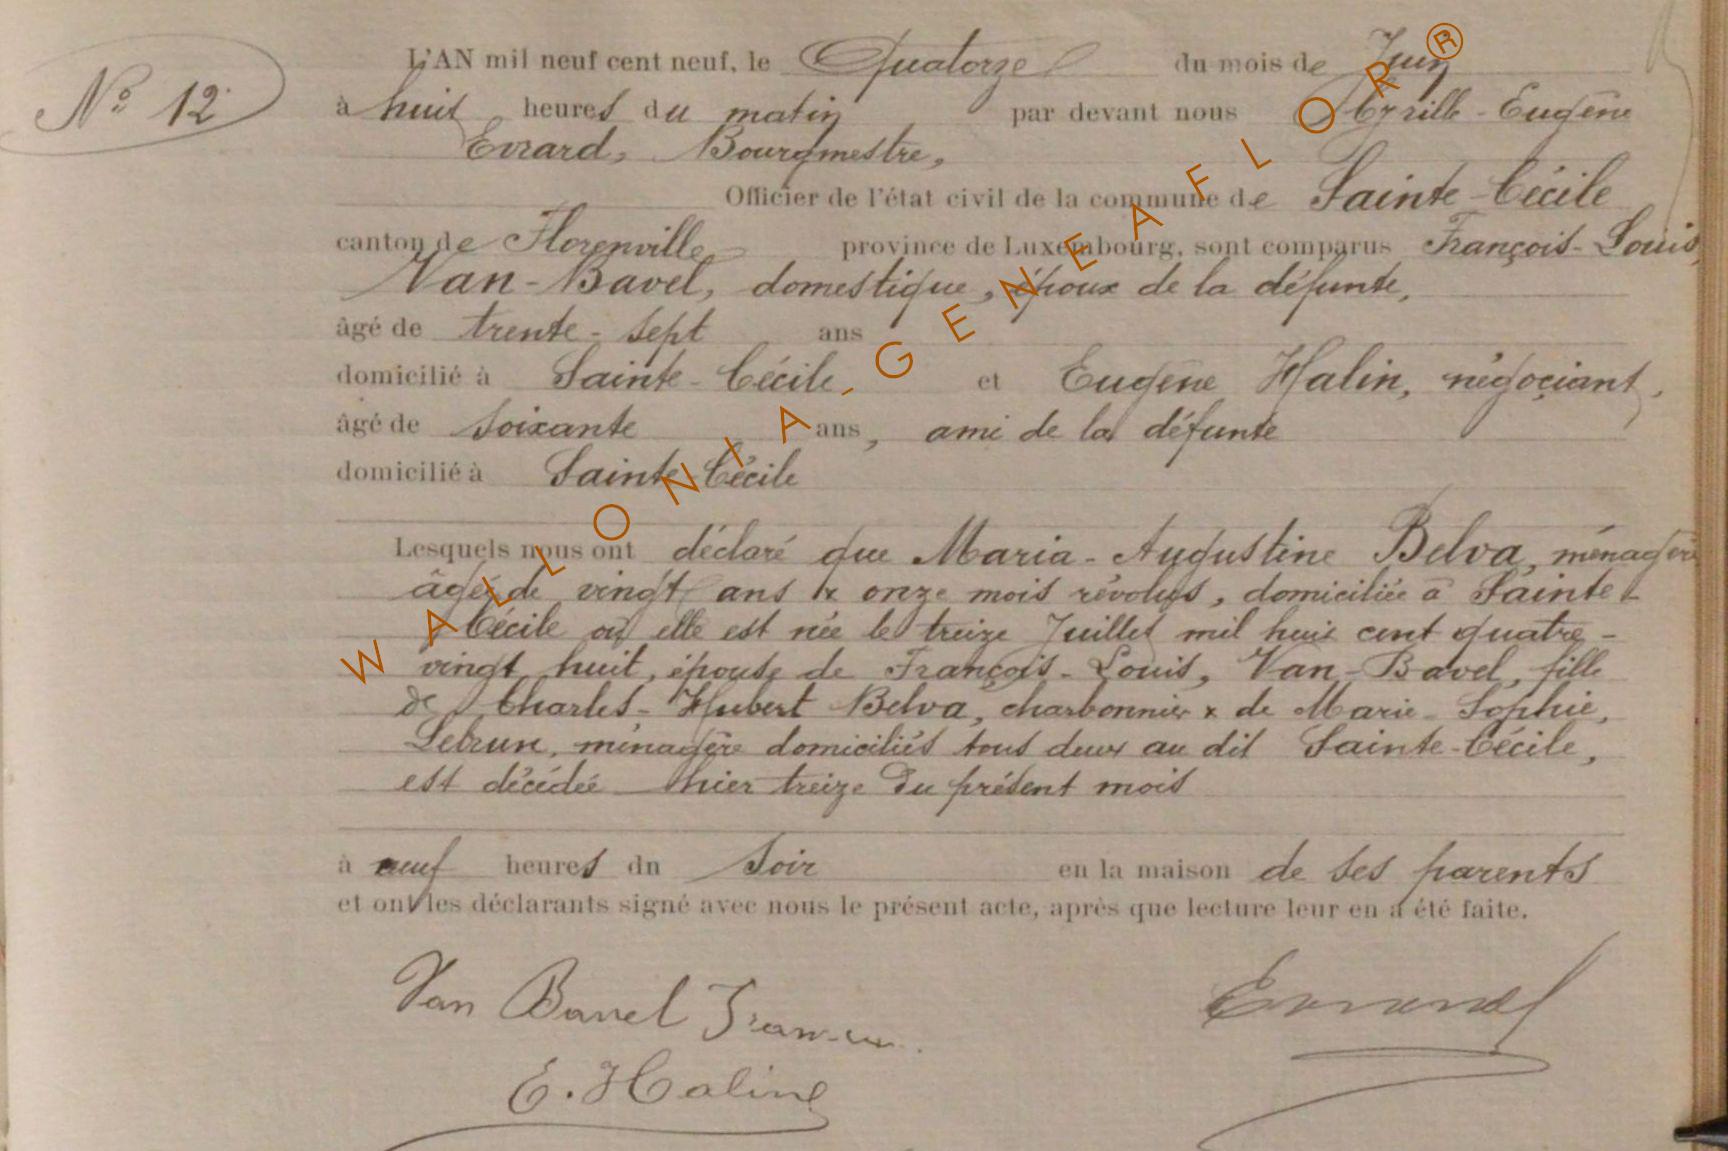 N° 12
L'AN mil neuf cent neuf, le Quatorze du mois de Juin
à huit heures du matin par devant nous Cyrille-Eugène
Evrard, Bourgmestre,
Officier de l'état civil de la commune de Sainte-Cécile
canton de Florenville province de Luxembourg, sont comparus François-Louis,
Van-Bavel, domestique, époux de la défunte,
âgé de trente-sept ans
domicilié à Sainte-Cécile et Eugène Halin, négoçiant,
âgé de soixante ans, ami de la défunte
domicilié à Sainte-Cécile
Lesquels nous ont déclaré que Maria-Augustine Belva, ménagère
âgée de vingt ans & onze mois révolus, domiciliée à Sainte-
Cécile où elle est née le treize Juillet mil huit cent quatre-
vingt huit, épouse de François-Louis, Van-Bavel, fille
de Charles-Hubert Belva, charbonnier & de Marie-Sophie,
Lebrun, ménagère domiciliés tous deux au dit Sainte-Cécile,
est décédée hier treize du présent mois
à neuf heures du soir en la maison de ses parents
et ont les déclarants signé avec nous le présent acte, après que lecture leur en a été faite.
Van Bavel Evrard
E. Haline
WALLONIA-GENEAFLOR®